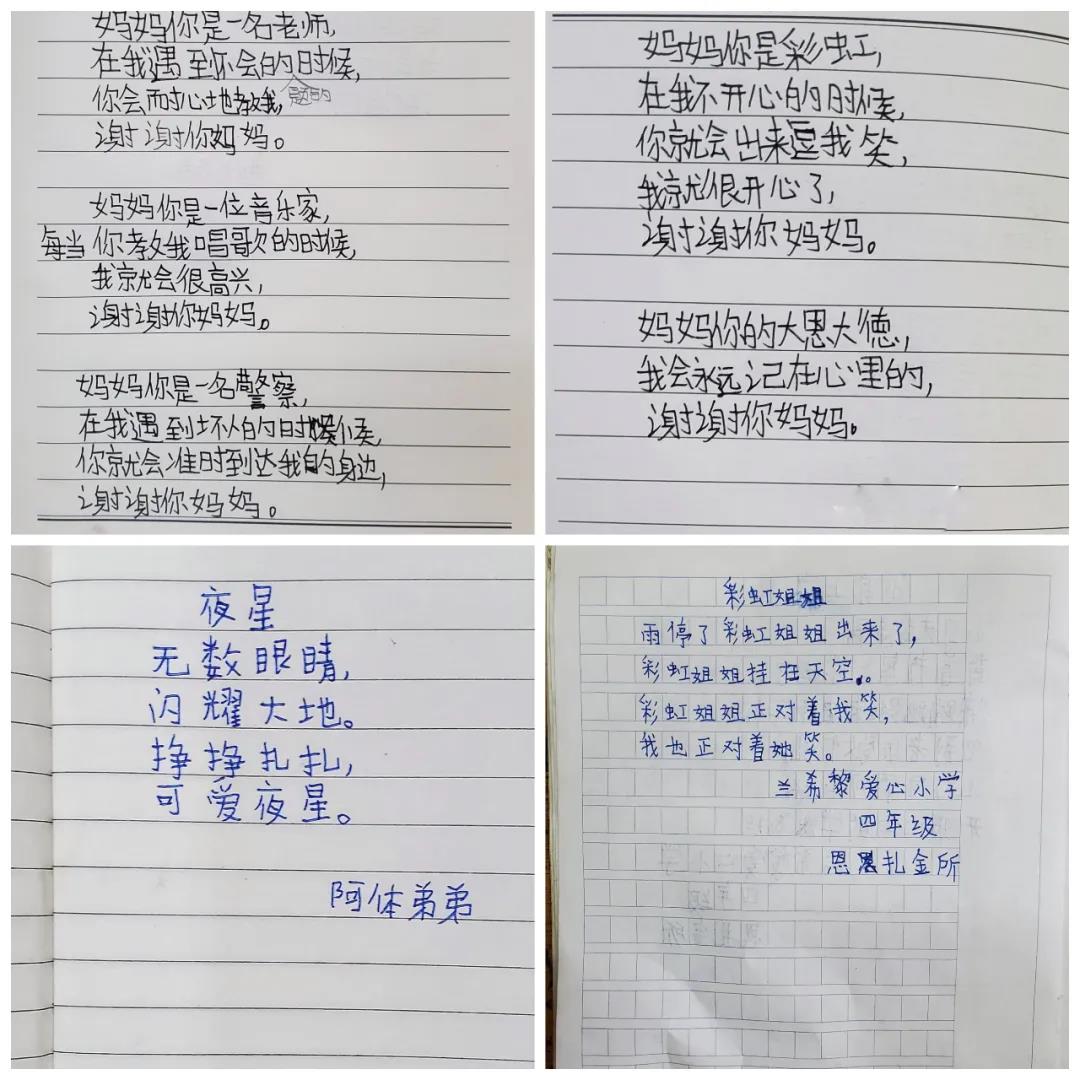 妈妈你是一名老师,
在我遇到不会的题的时候,
你会耐心地教我,
谢谢你妈妈。
妈妈你是一位音乐家,
每当你教我唱歌的时候,
我就会很高兴,
谢谢你妈妈。
妈妈你是一名警察,
在我遇到坏人的时候,
你就会准时到达我的身边,
谢谢你妈妈。
妈妈你是彩虹,
在我不开心的时候,
你就会出来逗我笑,
我就很开心了,
谢谢你妈妈。
妈妈你的大恩大德,
我会永远记在心里的,
谢谢你妈妈。
夜星
无数眼睛,
闪耀大地。
挣挣扎扎,
可爱夜星。
阿体弟弟
彩虹姐姐
雨停了彩虹姐姐出来了,
彩虹姐姐挂在天空。
彩虹姐姐正对着我笑,
我也正对着她笑。
兰希黎爱心小学
四年级
恩扎金所